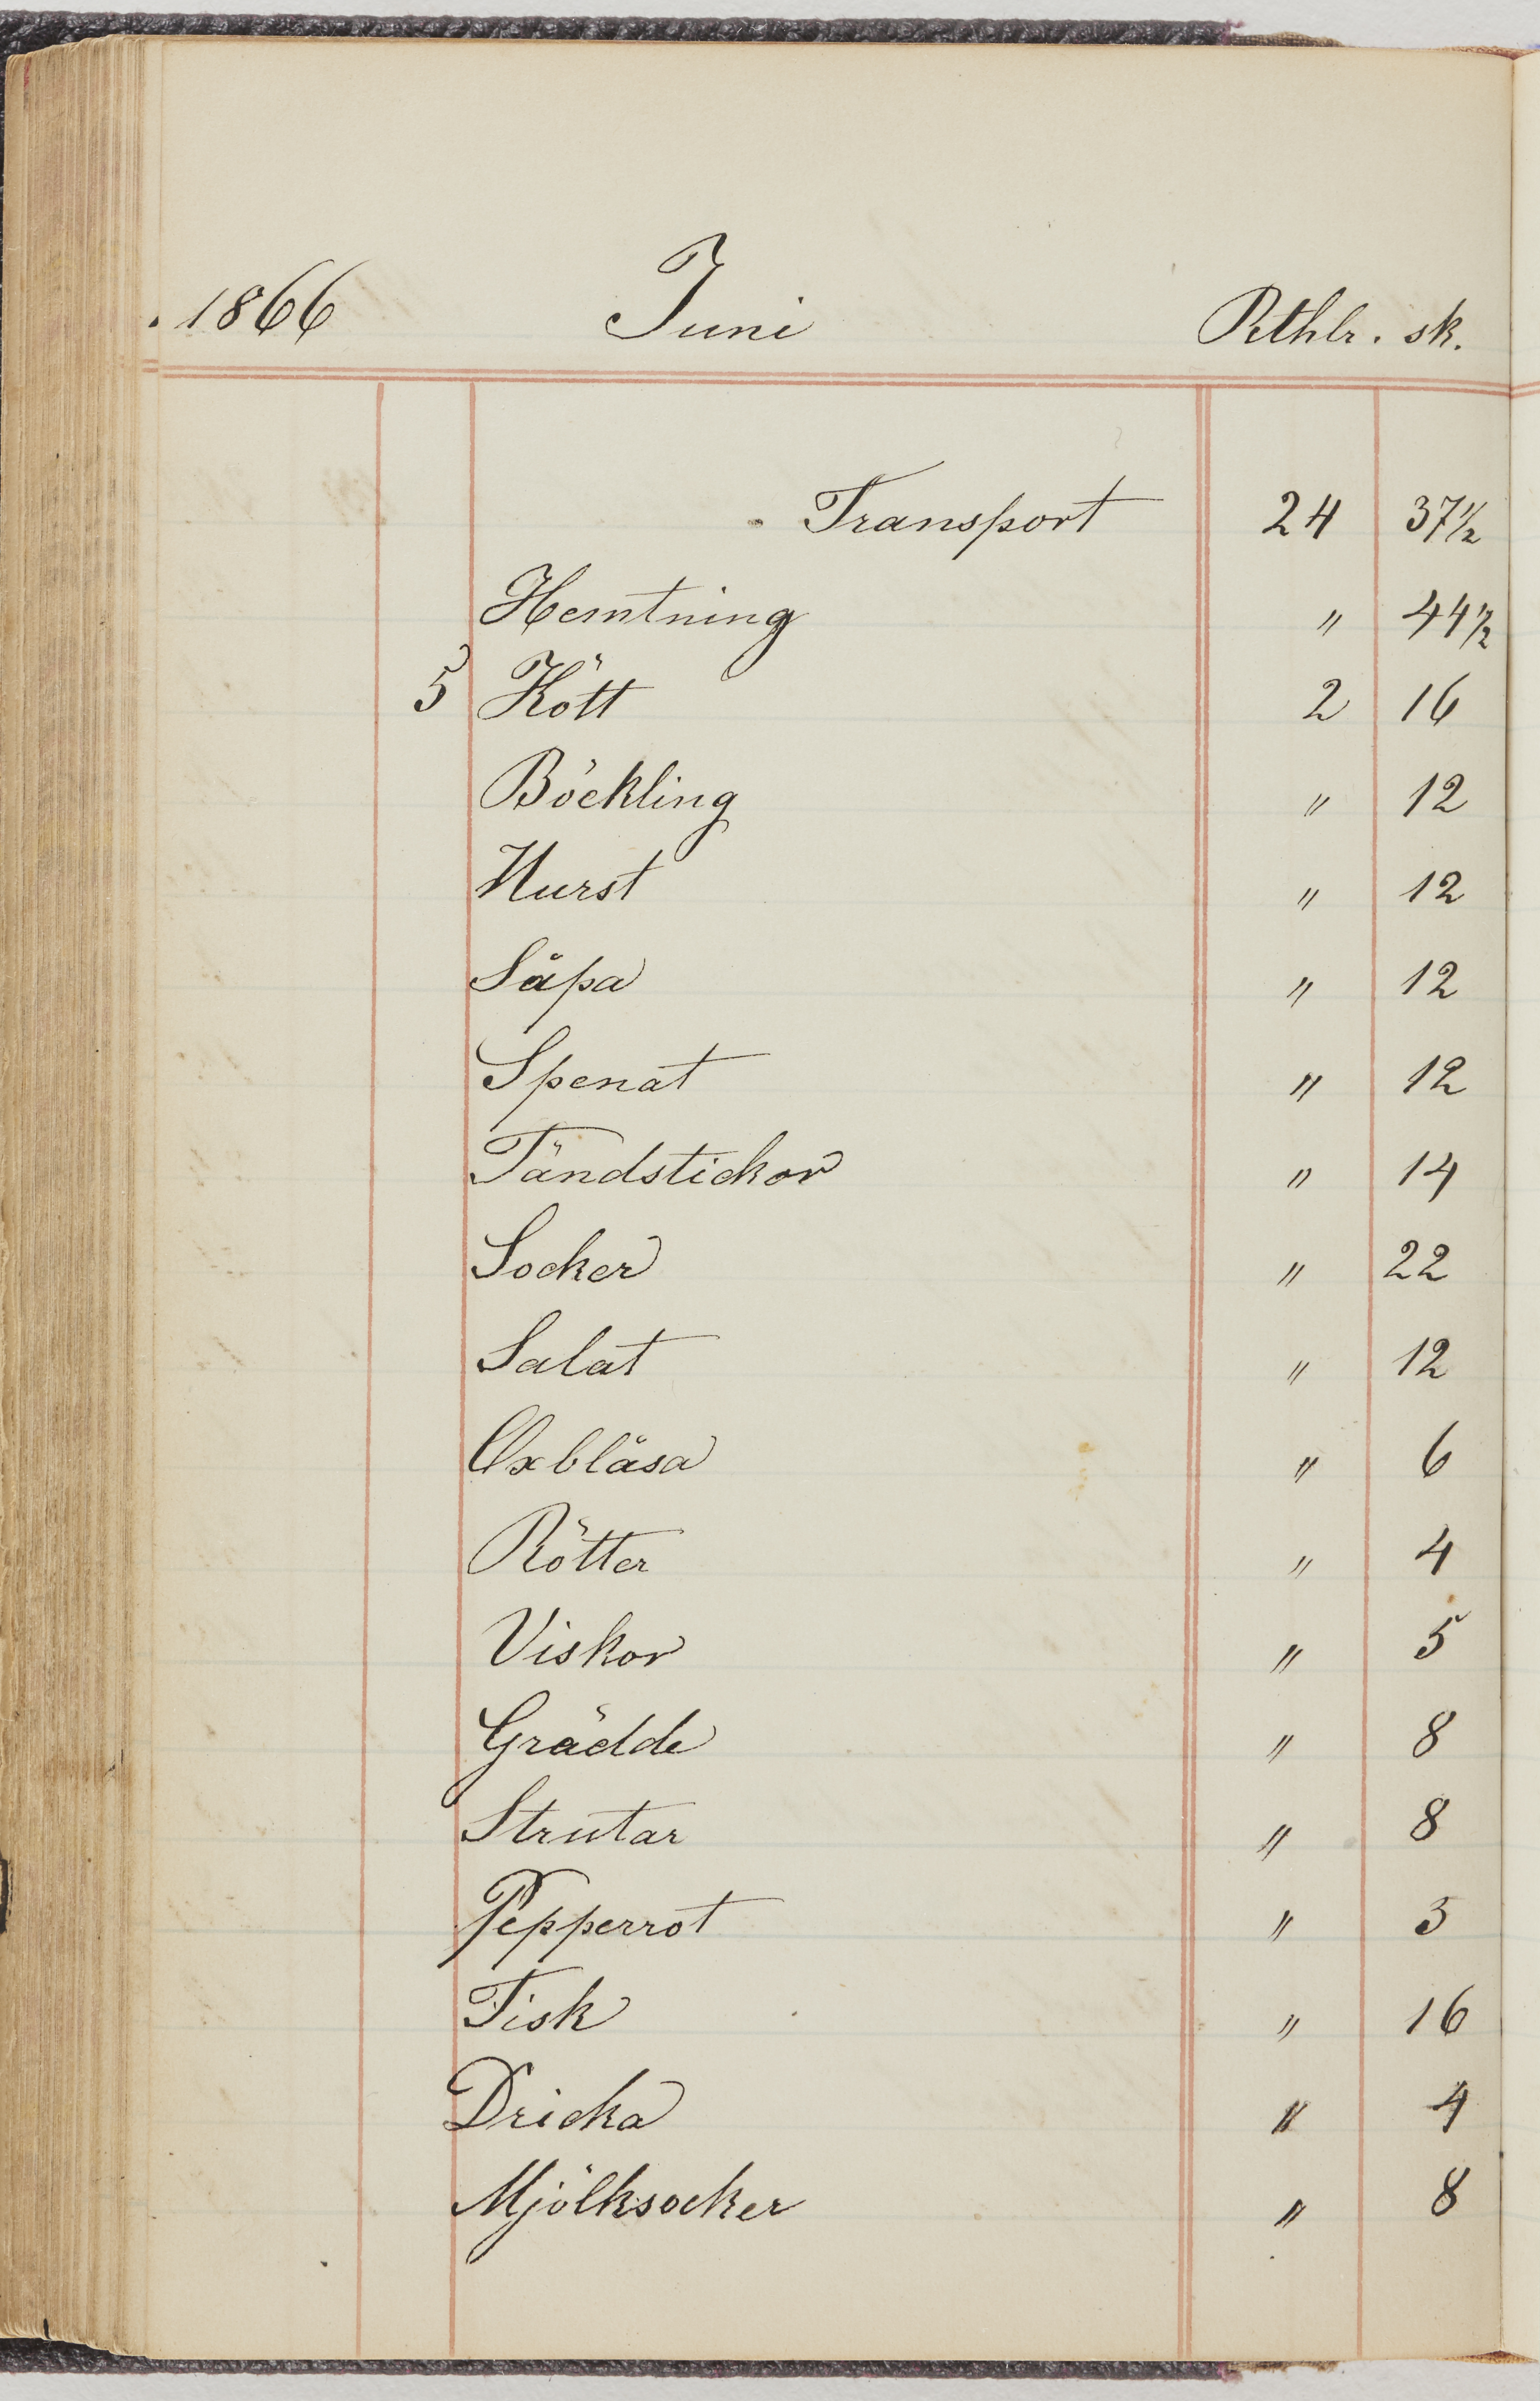 1866 Juni Rthlr. sk.
Transport 24 37 1/2
Hemtning " 44 1/2
5 Kött 2 16
Böckling " 12
Wurst " 12
Såpa " 12
Spenat " 12
Tändstickor " 14
Socker " 22
Salat " 12
Oxblåsa " 6
Rötter " 4
Viskor " 5
Grädde " 8
Strutar " 8
Pepperrot " 3
Fisk " 16
Dricka " 4
Mjölksocker " 8